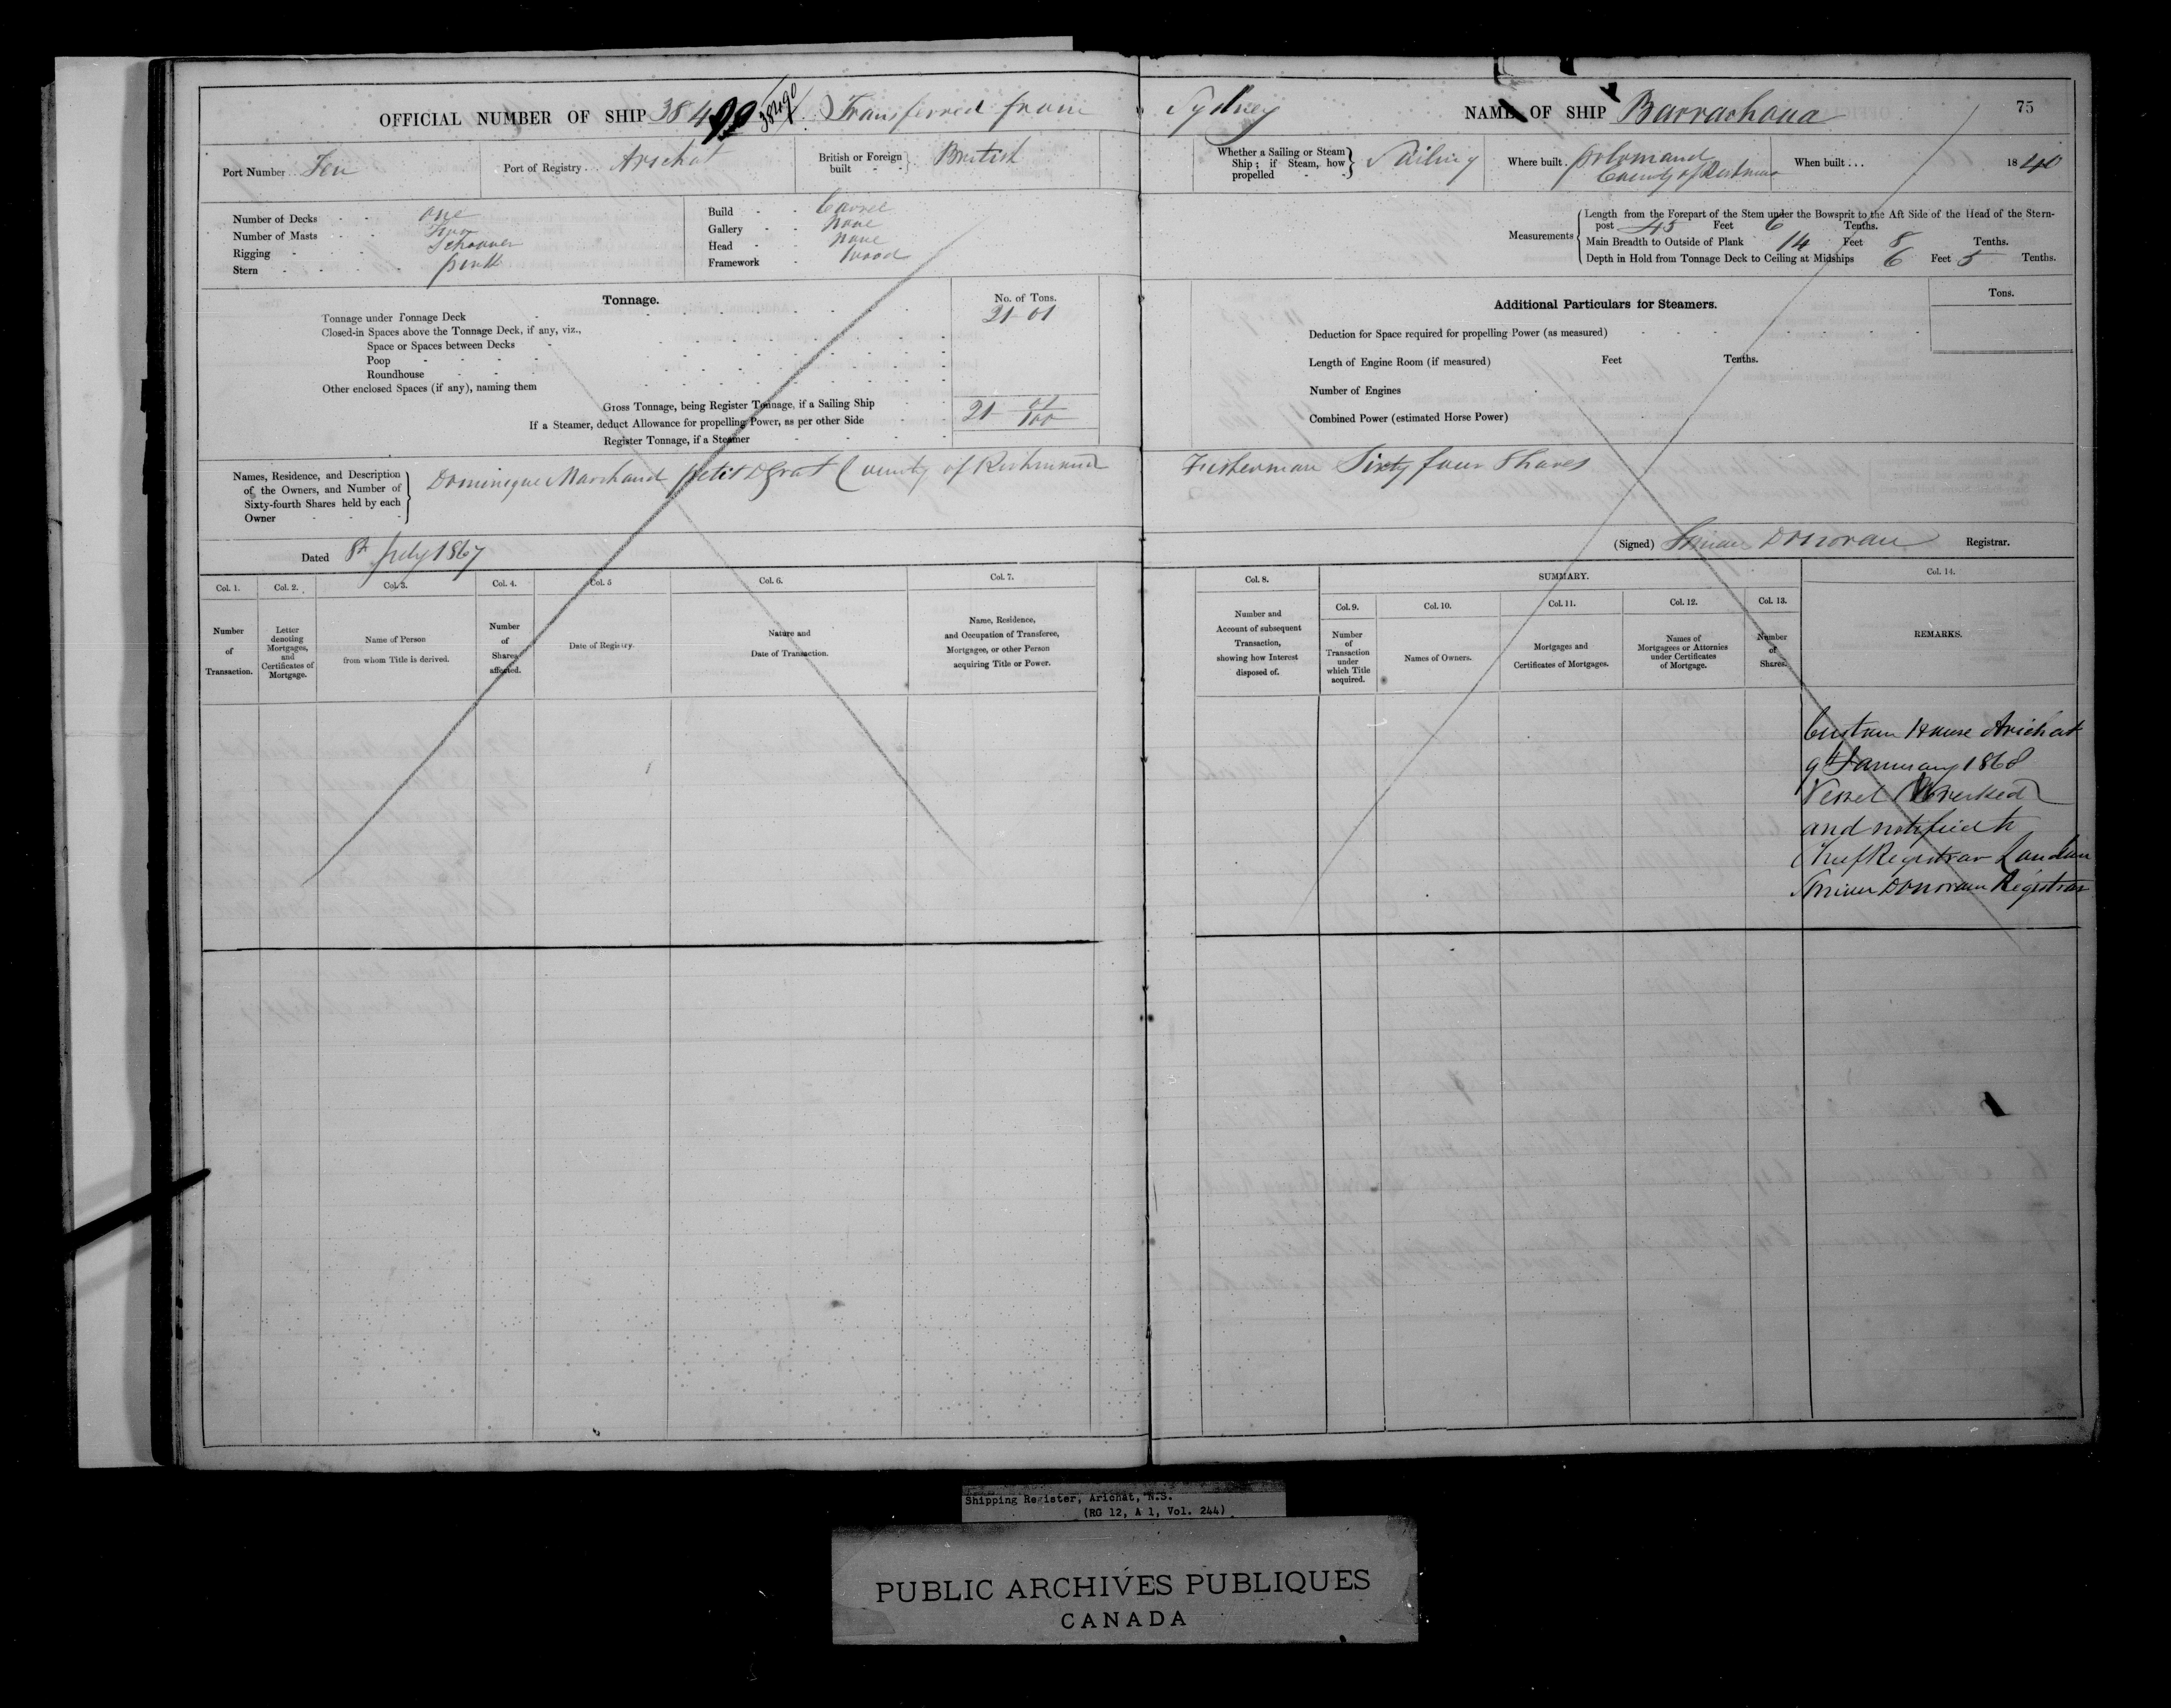 OFFICIAL NUMBER OF SHIP 38499 38490 Transferred from Sydney
NAME OF SHIP Barrachoua 75
Port Number . . Ten
Port of Registry . . . Arichat
British or Foreign built - - British
Whether a Sailing or Steam Ship; if Steam, how propelled - - Sailing
Where built . County of Richmond
When built . . . 1840
Number of Decks - - one
Number of Masts - - Two
Rigging - - Schooner
Stern - - - - - pink
Build - - Carvel
Gallery - - none
Head - - none
Framework - wood
Measurements
Length from the Forepart of the Stem under the Bowsprit to the Aft Side of the Head of the Stern-
post 45 Feet 6 Tenths.
Main Breadth to Outside of Plank 14 Feet 8 Tenths.
Depth in Hold from Tonnage Deck to Ceiling at Midships 6 Feet 5 Tenths.
Tonnage.
No. of Tons.
Tonnage under Tonnage Deck 21-01
Closed-in Spaces above the Tonnage Deck, if any, viz.,
Space or Spaces between Decks
Poop
Roundhouse
Other enclosed Spaces (if any), naming them
Gross Tonnage, being Register Tonnage, if a Sailing Ship 21 01/100
If a Steamer, deduct Allowance for propelling Power, as per other Side
Register Tonnage, if a Steamer
Additional Particulars for Steamers.
Tons.
Deduction for Space required for propelling Power (as measured)
Length of Engine Room (if measured) Feet Tenths.
Number of Engines
Combined Power (estimated Horse Power)
Names, Residence, and Description
of the Owners, and Number of
Sixty-fourth Shares held by each
Owner
Dominique Marchand petit DGrat County of Richmond Fisherman Sixty four Shares
Dated 8th July 1867
(Signed) Donovan Registrar.
Col. 1. Col. 2. Col. 3. Col. 4. Col. 5 Col. 6. Col. 7.
Number of Transaction.
Letter denoting Mortgages, and Certificates of Mortgage.
Name of Person from whom Title is derived.
Number of Shares affected.
Date of Registry.
Nature and Date of Transaction.
Name, Residence, and Occupation of Transferee, Mortgagee, or other Person acquiring Title or Power.
Col. 8. SUMMARY. Col. 14.
Col. 9. Col. 10. Col. 11. Col. 12. Col. 13.
Number and Account of subsequent Transaction, showing how Interest disposed of.
Number of Transaction under which Title acquired.
Names of Owners.
Mortgages and Certificates of Mortgages.
Names of Mortgagees or Attornies under Certificates of Mortgage.
Number of Shares.
REMARKS.
Custom House Arichat
9th January 1868
Vessel Wrecked
and notified to
Chief Registrar London
Donovan Registrar
Shipping Register, Arichat, N.S.
(RG 12, A 1, Vol. 244)
PUBLIC ARCHIVES PUBLIQUES
CANADA